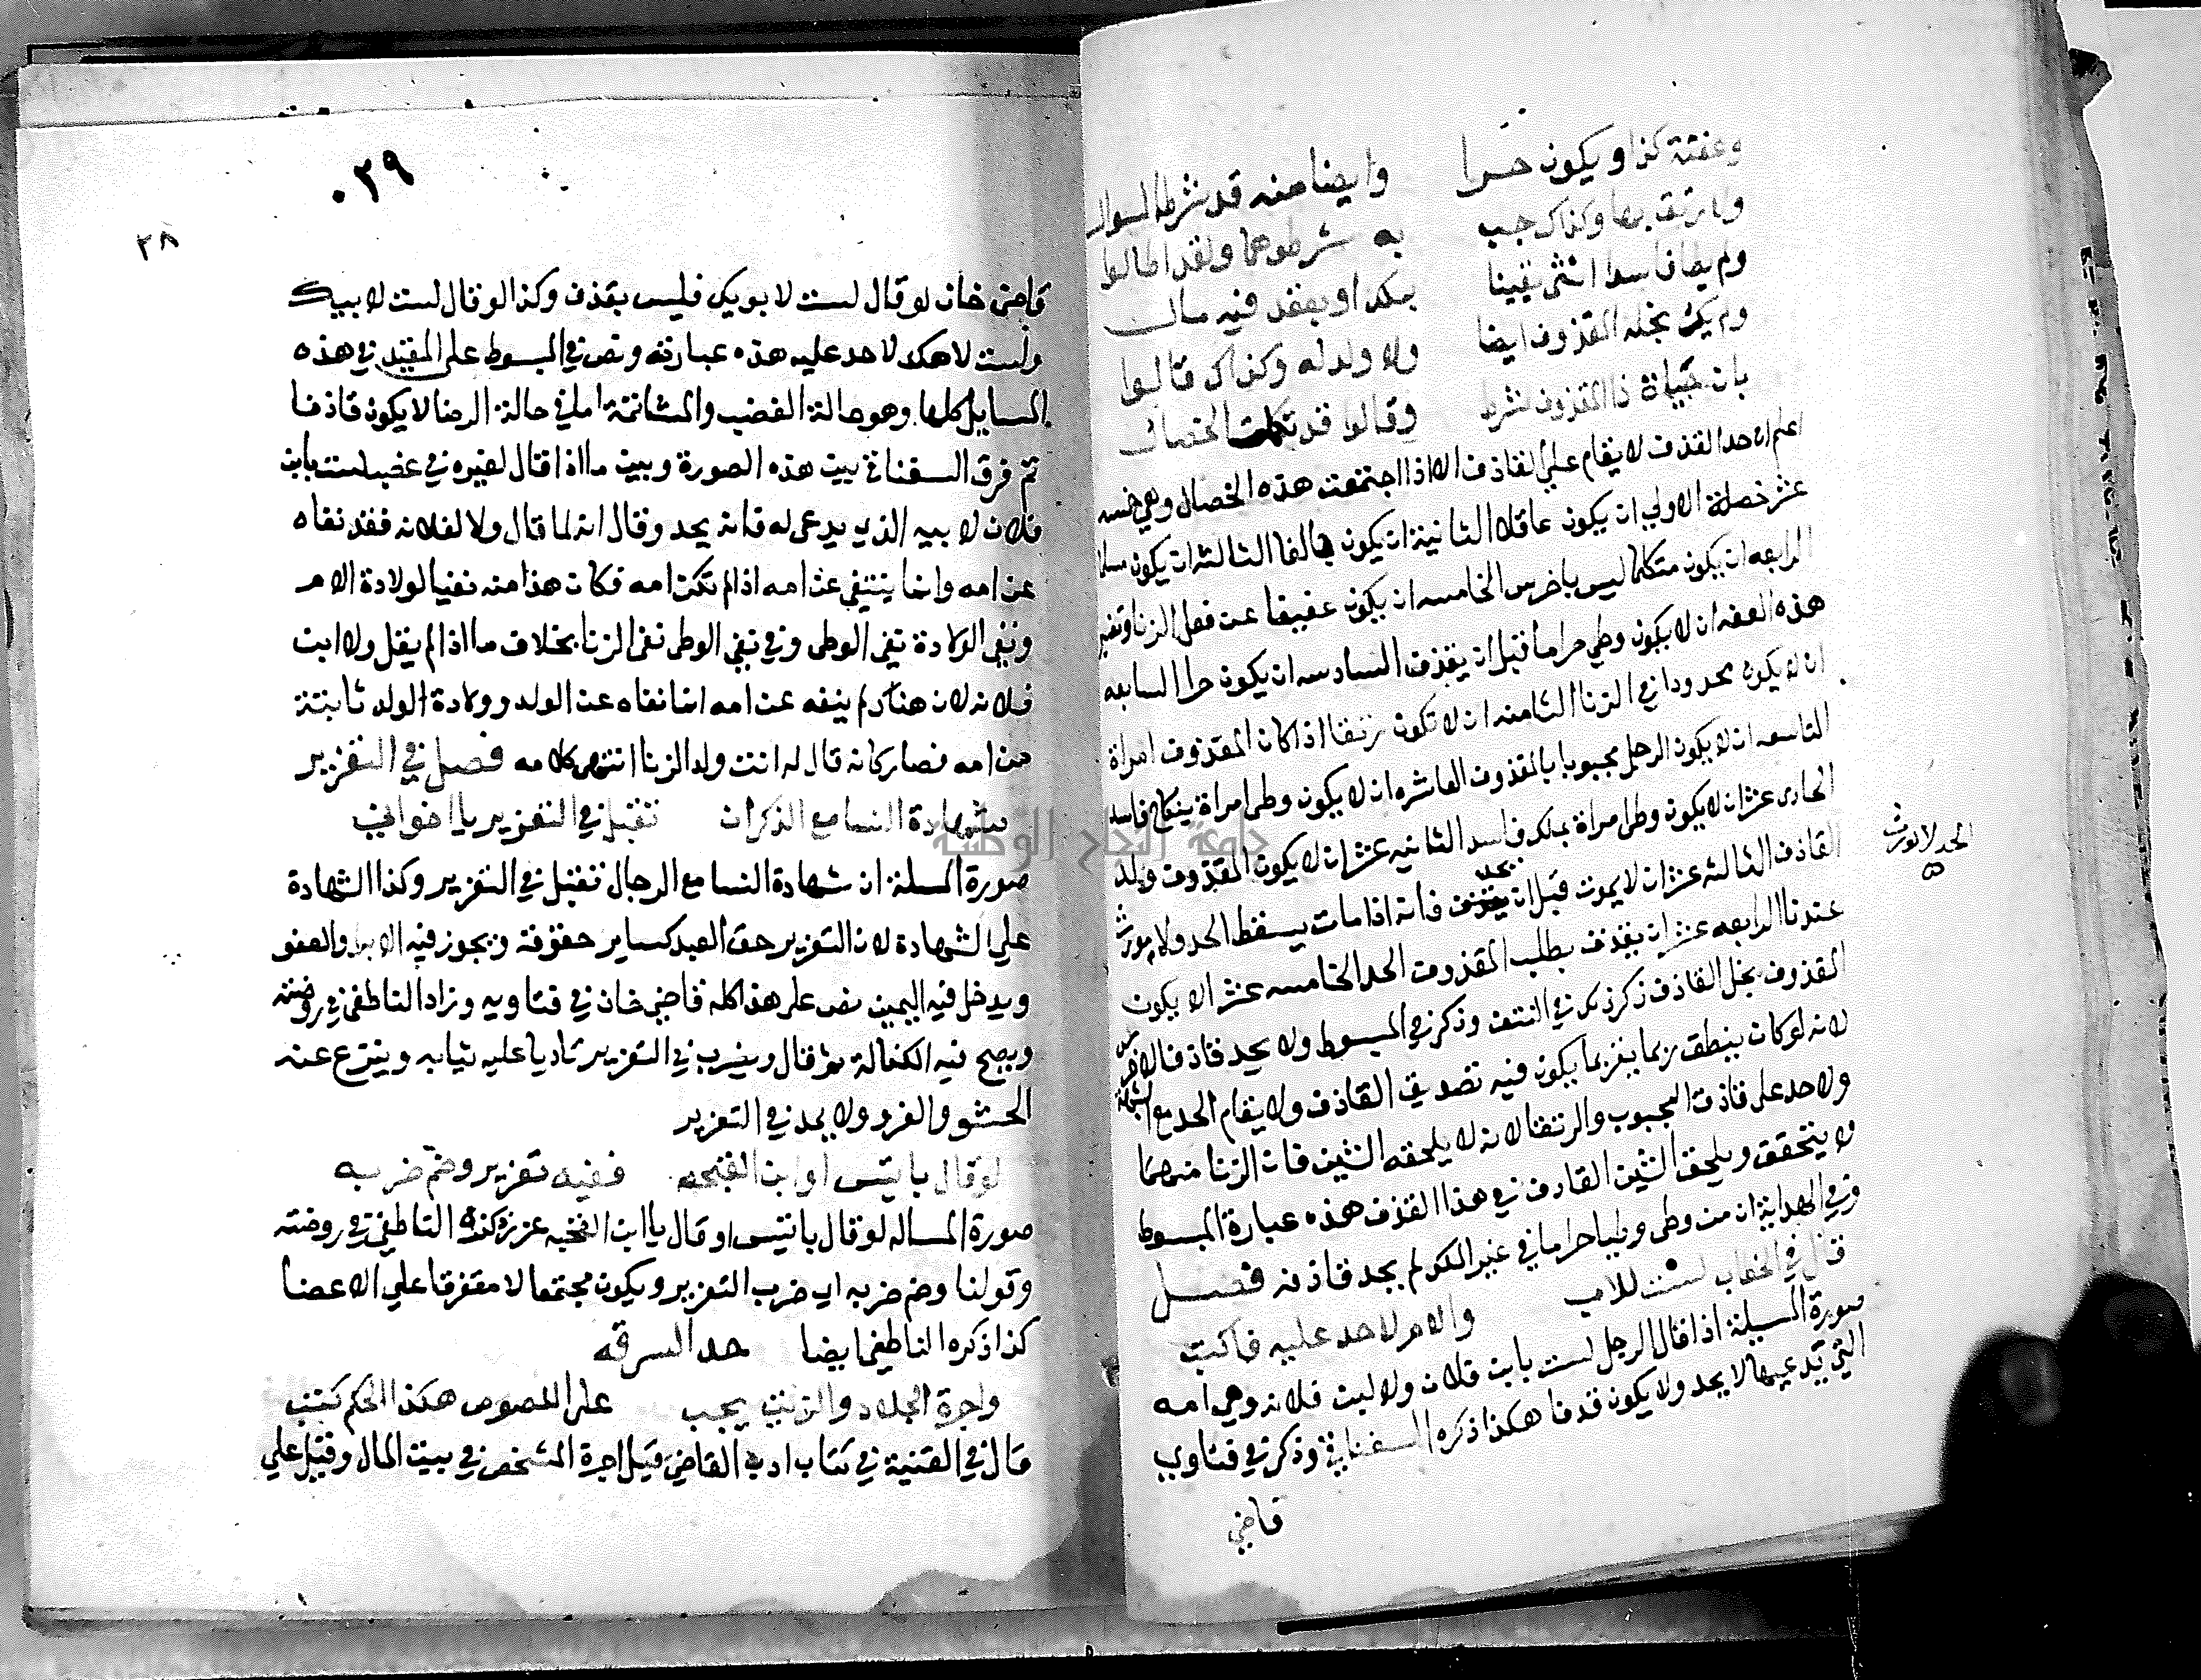 وعفته كذا ويكون حرا وايضا منه قد شرط السوال
ولا رتقا بها وكذاك جب به شرطوهما ولقد اطالوا
ولم يطا فاسدا انثى يقينا بملك او بعقد فيه مالت
ولم يكن نجله المقذوف ايضا ولا ولد له وكذاك قالوا
بان حياة ذا المقذوف شرط وقالوا قد تكملت الخصال
اعلم ان حد القذف لا يقام علي القاذف الا اذا اجتمعت هذه الخصال وهي خمسه
عشر خصلة الاولي ان يكون عاقلا الثانية ان يكون بالغا الثالثة ان يكون مسلما
الرابعه ان يكون متكلما ليس باخرس الخامسه ان يكون عفيفا عن فعل الزنا وتفسير
هذه العفه ان لا يكون وطي حراما قبل ان يقذف السادسه ان يكون حرا السابعه
ان لا يكون محدودا في الزنا الثامنه ان لا تكون رتقا اذا كان المقذوف امراة
التاسعه ان لا يكون الرجل مجبوبا بالمقذوف العاشره ان لا يكون وطي امراة بنكاح فاسد
الحادي عشر ان لا يكون وطي امراة بملك فاسد الثانيه عشر ان لا يكون المقذوف ولد
القاذف الثالثه عشر ان لا يموت قبل ان يحد فانه اذا مات يسقط الحد ولا يورث
الحد لا يورث
عندنا الرابعه عشر ان يقذف بطلب المقذوف الحد الخامسه عشر الا يكون
المقذوف نجل القاذف ذكر ذلك في النتف وذكر في المبسوط ولا يحد قاذف الاخرس
لانه لو كان ينطق ربما يقر بما يكون فيه تصديق القاذف ولا يقام الحد مع الشبهة
ولا حد علي قاذف المجبوب والرتقا لانه لا يلحقه الشين فان الزنا منهما
لا يتحقق ويلحق الشين القاذف في هذا القذف هذه عبارة المبسوط
وفي الهداية ان من وطي وطيا حراما في غير الملك لم يحد قاذفه فصل
قال في الخطاب لست للاب والام لا حد عليه فاكتب
صورة المسيلة اذا قال الرجل لست بابن فلان ولا لبت فلانه وهي امه
التي تدعيها لا يحد ولا يكون قذفا هكذا ذكره السغناقي وذكر في فتاوي
قاضي
٠٣٩
٣٨
قاضي خان لو قال لست لابويك فليس بقذف وكذا لو قال لست لابيك
ولست لامك لا حد عليه هذه عبارته ونص في المبسوط علي المقيد في هذه
المسايل كلها وهو حالة الغضب والمشاتمة اما في حالة الرضا لا يكون قاذفا
ثم فرق السغناقي بين هذه الصورة وبين ما اذا قال لغيره في غضب لست بابن
فلان لابيه الذي يدعي له فانه يحد وقال انه لما قال ولا لفلانه فقد نفاه
عن امه وانما ينتفي عن امه اذا لم تكن امه فكان هذا منه نفيا لولادة الام
ونفي الولادة نفي الوطي وفي نفي الوطي نفي الزنا بخلاف ما اذا لم يقل ولا ابن
فلانه لان هناك لم ينفه عن امه انما نفاه عن الوالد وولادة الولد ثابتة
من امه فصار كانه قال له انت ولد الزنا انتهي كلامه فصل في التعزير
شهادة النسا مع الذكران تقبل في التعزير يا اخواني
صورة المسلة ان شهادة النسا مع الرجال تقبل في التعزير وكذا الشهادة
علي الشهادة لان التعزير حق العبد كساير حقوقه ويجوز فيه الابرا والعفو
ويدخل فيه اليمين نص علي هذا كله قاضي خان في فتاويه وزاد الناطفي في روضته
ويصح فيه الكفالة ثم قال ويضرب في التعزير تاديا عليه ثيابه وينزع عنه
الحشو والفرو ولا يمد في التعزير
لو قال يا تيس او ابن القحبه ففيه تعزير وضم ضربه
صورة المساله لو قال يا تيس او قال يا ابن القحبه عزر كذا الناطفي في روضته
وقولنا وضم ضربه اي ضرب التعزير ويكون مجتمعا لا مفترقا علي الاعضا
كذا ذكره الناطفي ايضا حد السرقه
واجرة الجلاد والزيت يجب علي اللصوص هكذا الحكم كتب
قال في القنية في كتاب ادب القاضي قيل اجرة المشخص في بيت المال وقيل علي